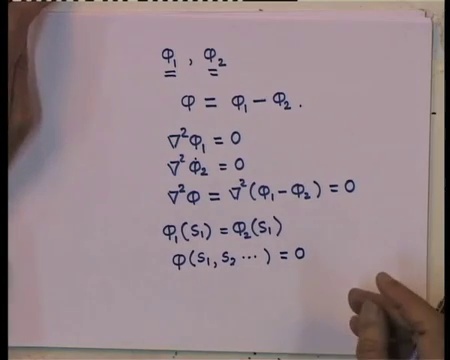 φ₁ , φ₂
φ = φ₁ − φ₂ .
∇²φ₁ = 0
∇²φ₂ = 0
∇²φ = ∇²(φ₁ − φ₂) = 0
φ₁(S₁) = φ₂(S₁)
φ(S₁, S₂ ⋯ ) = 0